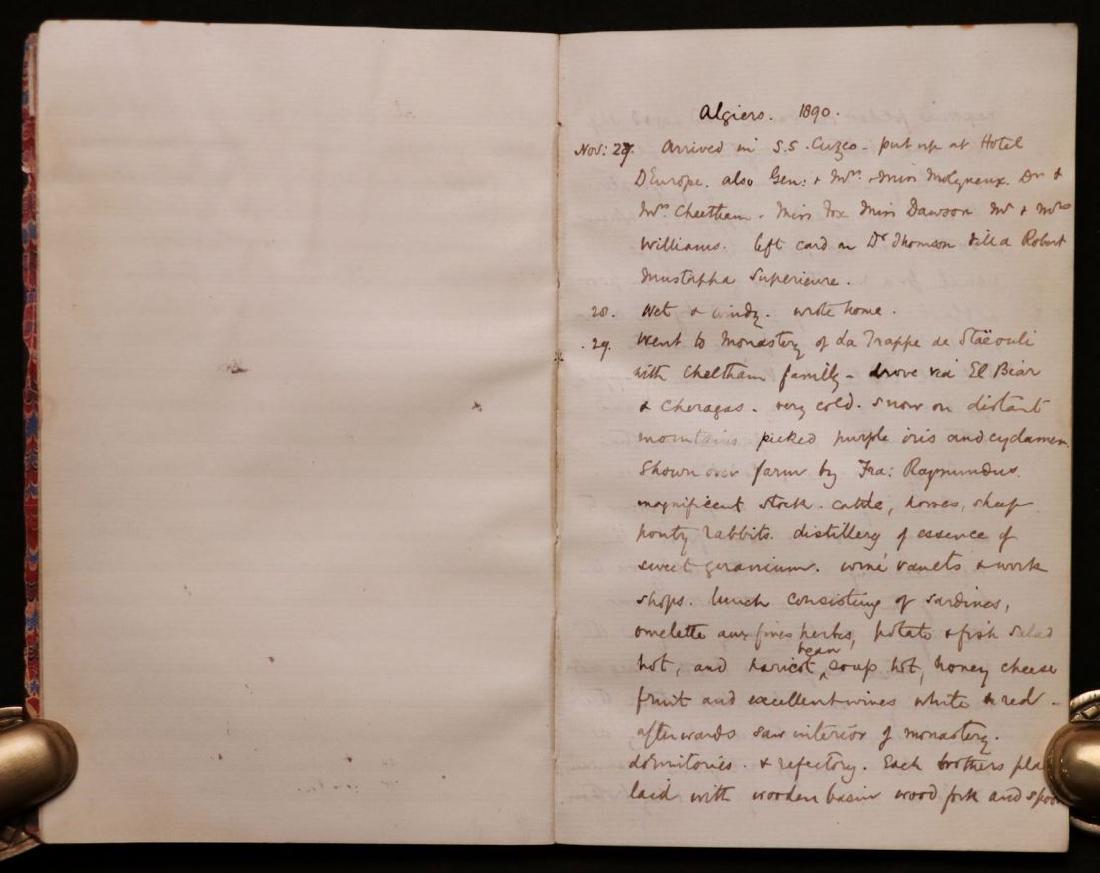 Algiers. 1890.
Nov: 27. Arrived in S.S. Cuzco - put up at Hotel
D'Europe. also Gen: & Mrs. & Miss Molyneux. Dr &
Mrs Cheetham. Miss Fox Miss Dawson Mr & Mrs
Williams. left card on Dr Thomson Villa Robert
Mustapha Superieure.
28. Wet & windy. wrote home.
29. Went to Monastery of La Trappe de Staëouli
with Cheetham family - drove via El Biar
& Cheragas. very cold. snow on distant
mountains picked purple iris and cyclamen.
Shown over farm by Fra: Raymundus.
magnificent stock. cattle, horses, sheep
poulty rabbits. distillery of essence of
sweet geranium. wine vaults & work
shops. lunch consisting of sardines,
omelette aux fines herbes, potato & fish salad
hot, and haricot bean soup hot, honey cheese
fruit and excellent wines white & red -
afterwards saw interior of monastery.
dormitories. & refectory. Each brothers
laid with wooden basin wood fork and spoon